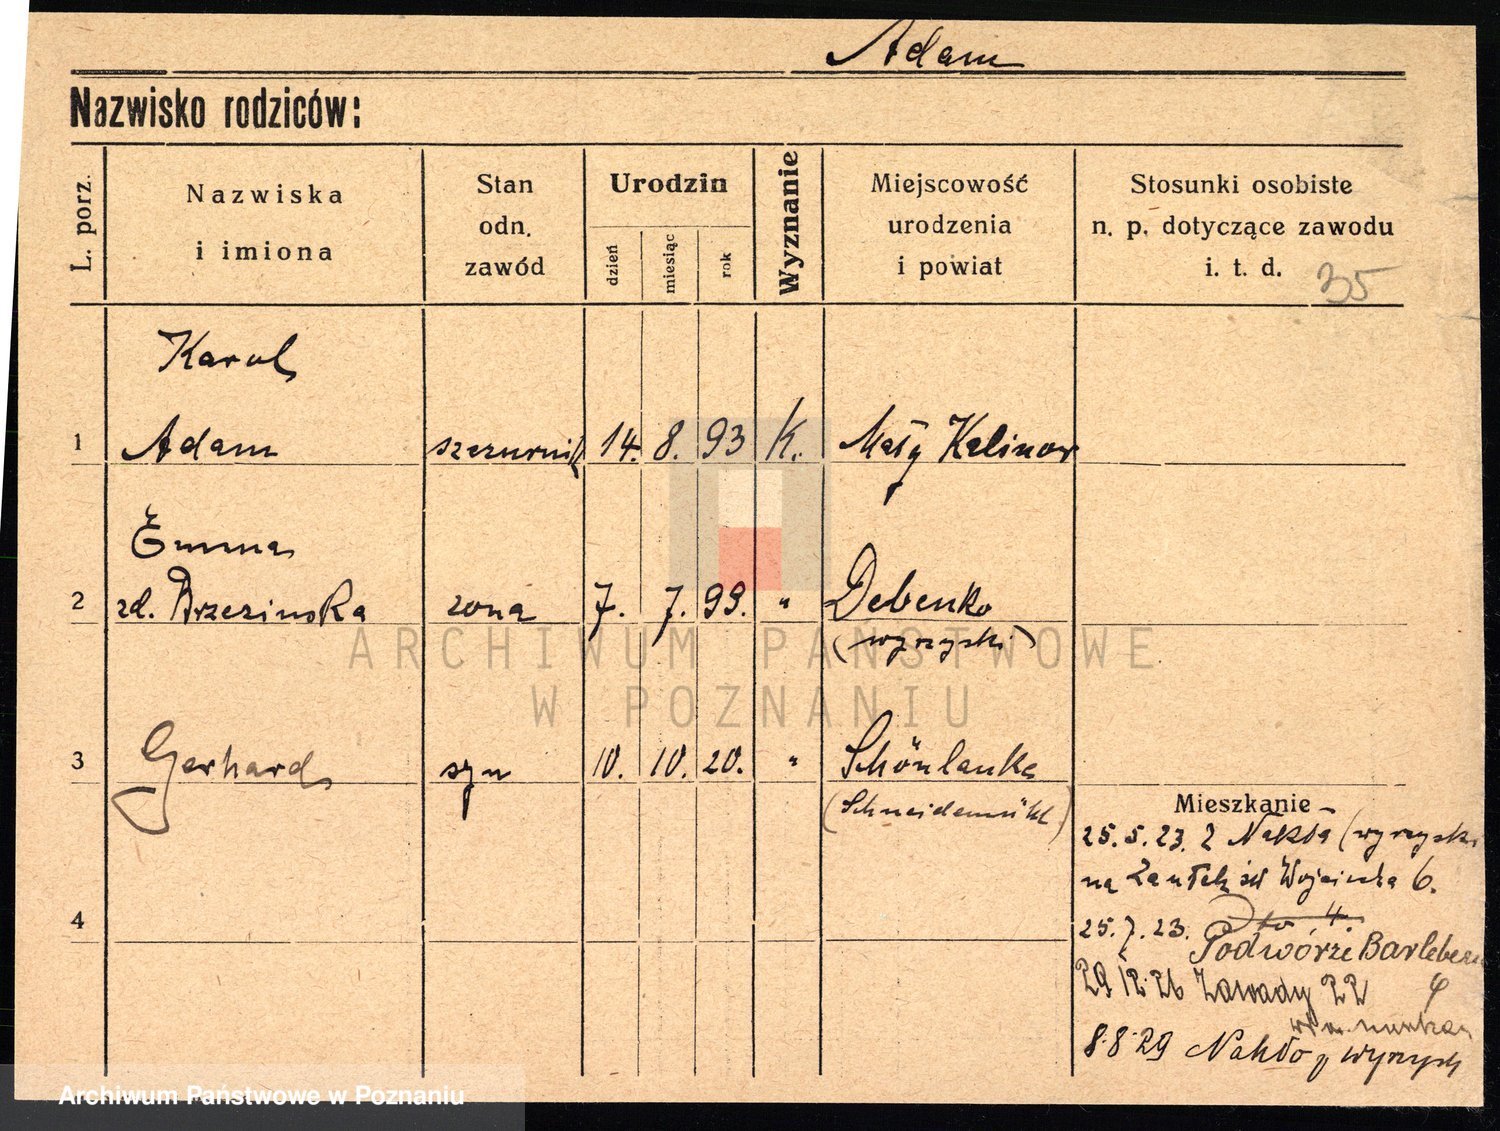 Adam
Nazwisko rodziców:
L. porz.
Nazwiska
i imiona
Stan
odn.
zawód
Urodzin
dzień
miesiąc
rok
Wyznanie
Miejscowość
urodzenia
i powiat
Stosunki osobiste
n. p. dotyczące zawodu
i. t. d.
35
Karol
1 Adam 14. 8. 93 K. Mały Kalinow
Emma
2 zd. Brzezinska zona 7. 7. 99. " Debenko
(wyrzyski)
3 Gerhard syn 10. 10. 20. " Schönlanke
(Schneidemühl)
Mieszkanie
25.5.23. z Nakła (wyrzyski
na Zaułek św Wojciecha 6.
4
25.7.23. Dto 4.
Podwórze Barleben
4
29 12 26 Zawady 22
8.8.29 Nakło p wyrzysk
ARCHIWUM PAŃSTWOWE
W POZNANIU
Archiwum Państwowe w Poznaniu